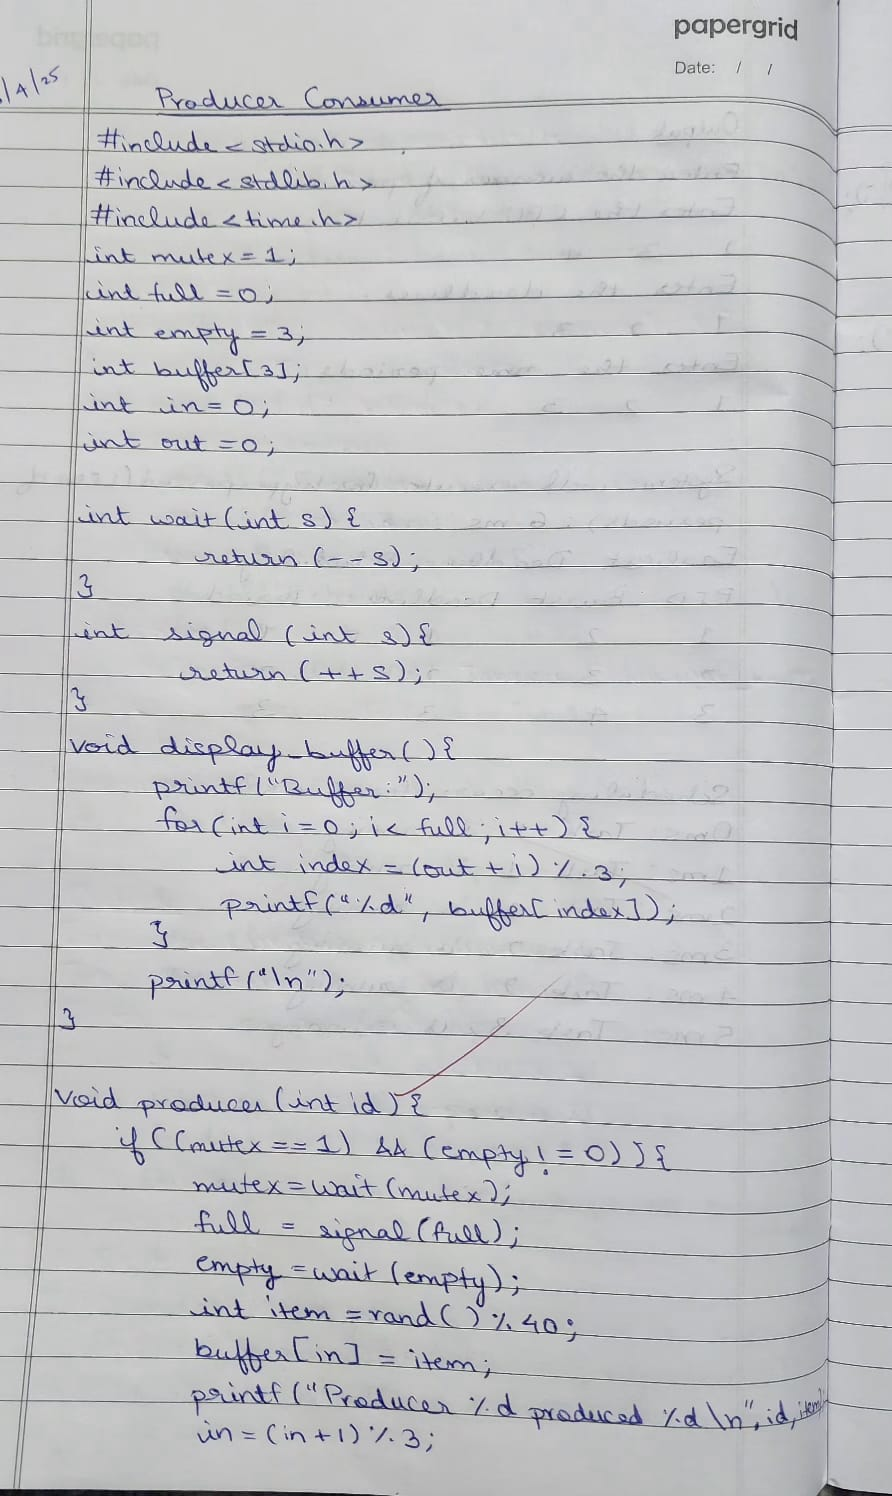 papergrid
Date: / /
/4/25
Producer Consumer
#include <stdio.h>
#include <stdlib.h>
#include <time.h>
int mutex = 1;
int full = 0;
int empty = 3;
int buffer[3];
int in = 0;
int out = 0;
int wait (int s) {
return (--s);
}
int signal (int s) {
return (++s);
}
void display_buffer() {
printf("Buffer:");
for (int i=0; i< full; i++) {
int index = (out + i) % 3;
printf("%d", buffer[index]);
}
printf("\n");
}
void producer (int id) {
if ((mutex == 1) && (empty != 0)) {
mutex = wait (mutex);
full = signal (full);
empty = wait (empty);
int item = rand() % 40;
buffer[in] = item;
printf("Producer %d produced %d \n", id, item);
in = (in + 1) % 3;